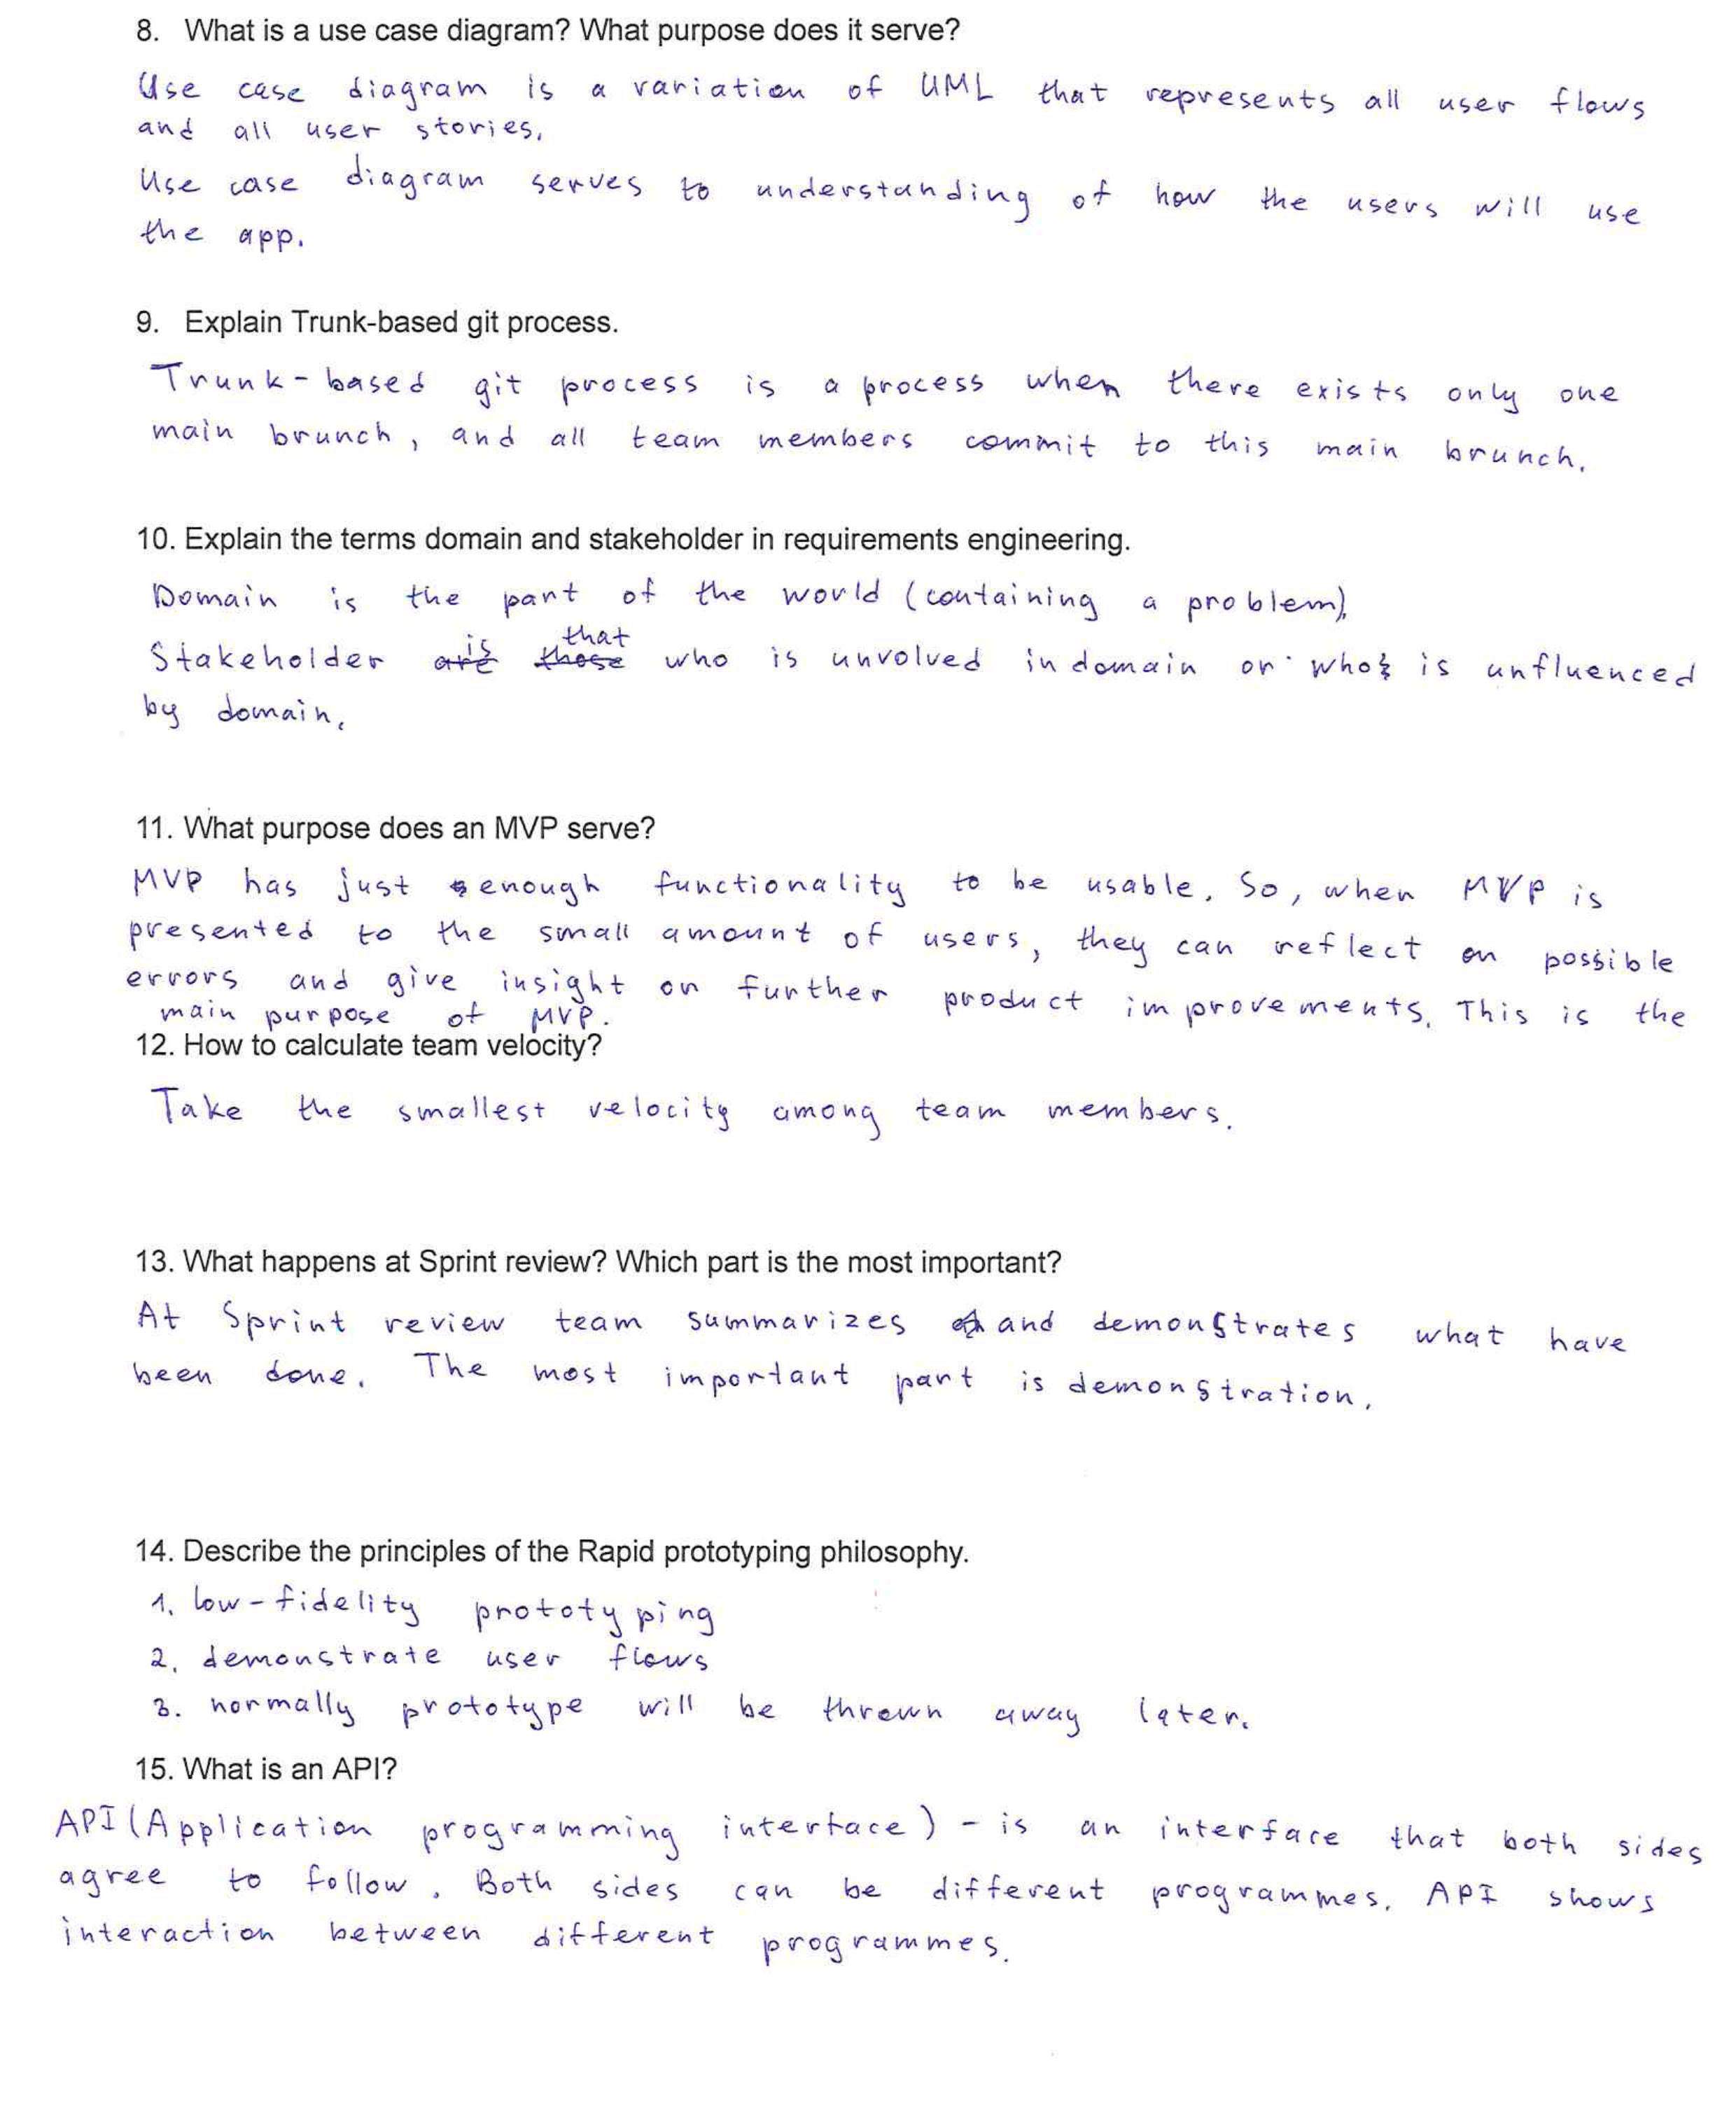 8. What is a use case diagram? What purpose does it serve?
Use case diagram is a variation of UML that represents all user flows
and all user stories.
Use case diagram serves to understanding of how the users will use
the app.
9. Explain Trunk-based git process.
Trunk-based git process is a process when there exists only one
main brunch, and all team members commit to this main brunch.
10. Explain the terms domain and stakeholder in requirements engineering.
Domain is the part of the world (containing a problem).
is that
Stakeholder are those who is unvolved in domain or who is unfluenced
by domain.
11. What purpose does an MVP serve?
MVP has just enough functionality to be usable. So, when MVP is
presented to the small amount of users, they can reflect on possible
errors and give insight on further product improvements. This is the
main purpose of MVP.
12. How to calculate team velocity?
Take the smallest velocity among team members.
13. What happens at Sprint review? Which part is the most important?
At Sprint review team summarizes and demonstrates what have
been done. The most important part is demonstration.
14. Describe the principles of the Rapid prototyping philosophy.
1. low-fidelity prototyping
2. demonstrate user flows
3. normally prototype will be thrown away later.
15. What is an API?
API (Application programming interface) - is an interface that both sides
agree to follow. Both sides can be different programmes. API shows
interaction between different programmes.